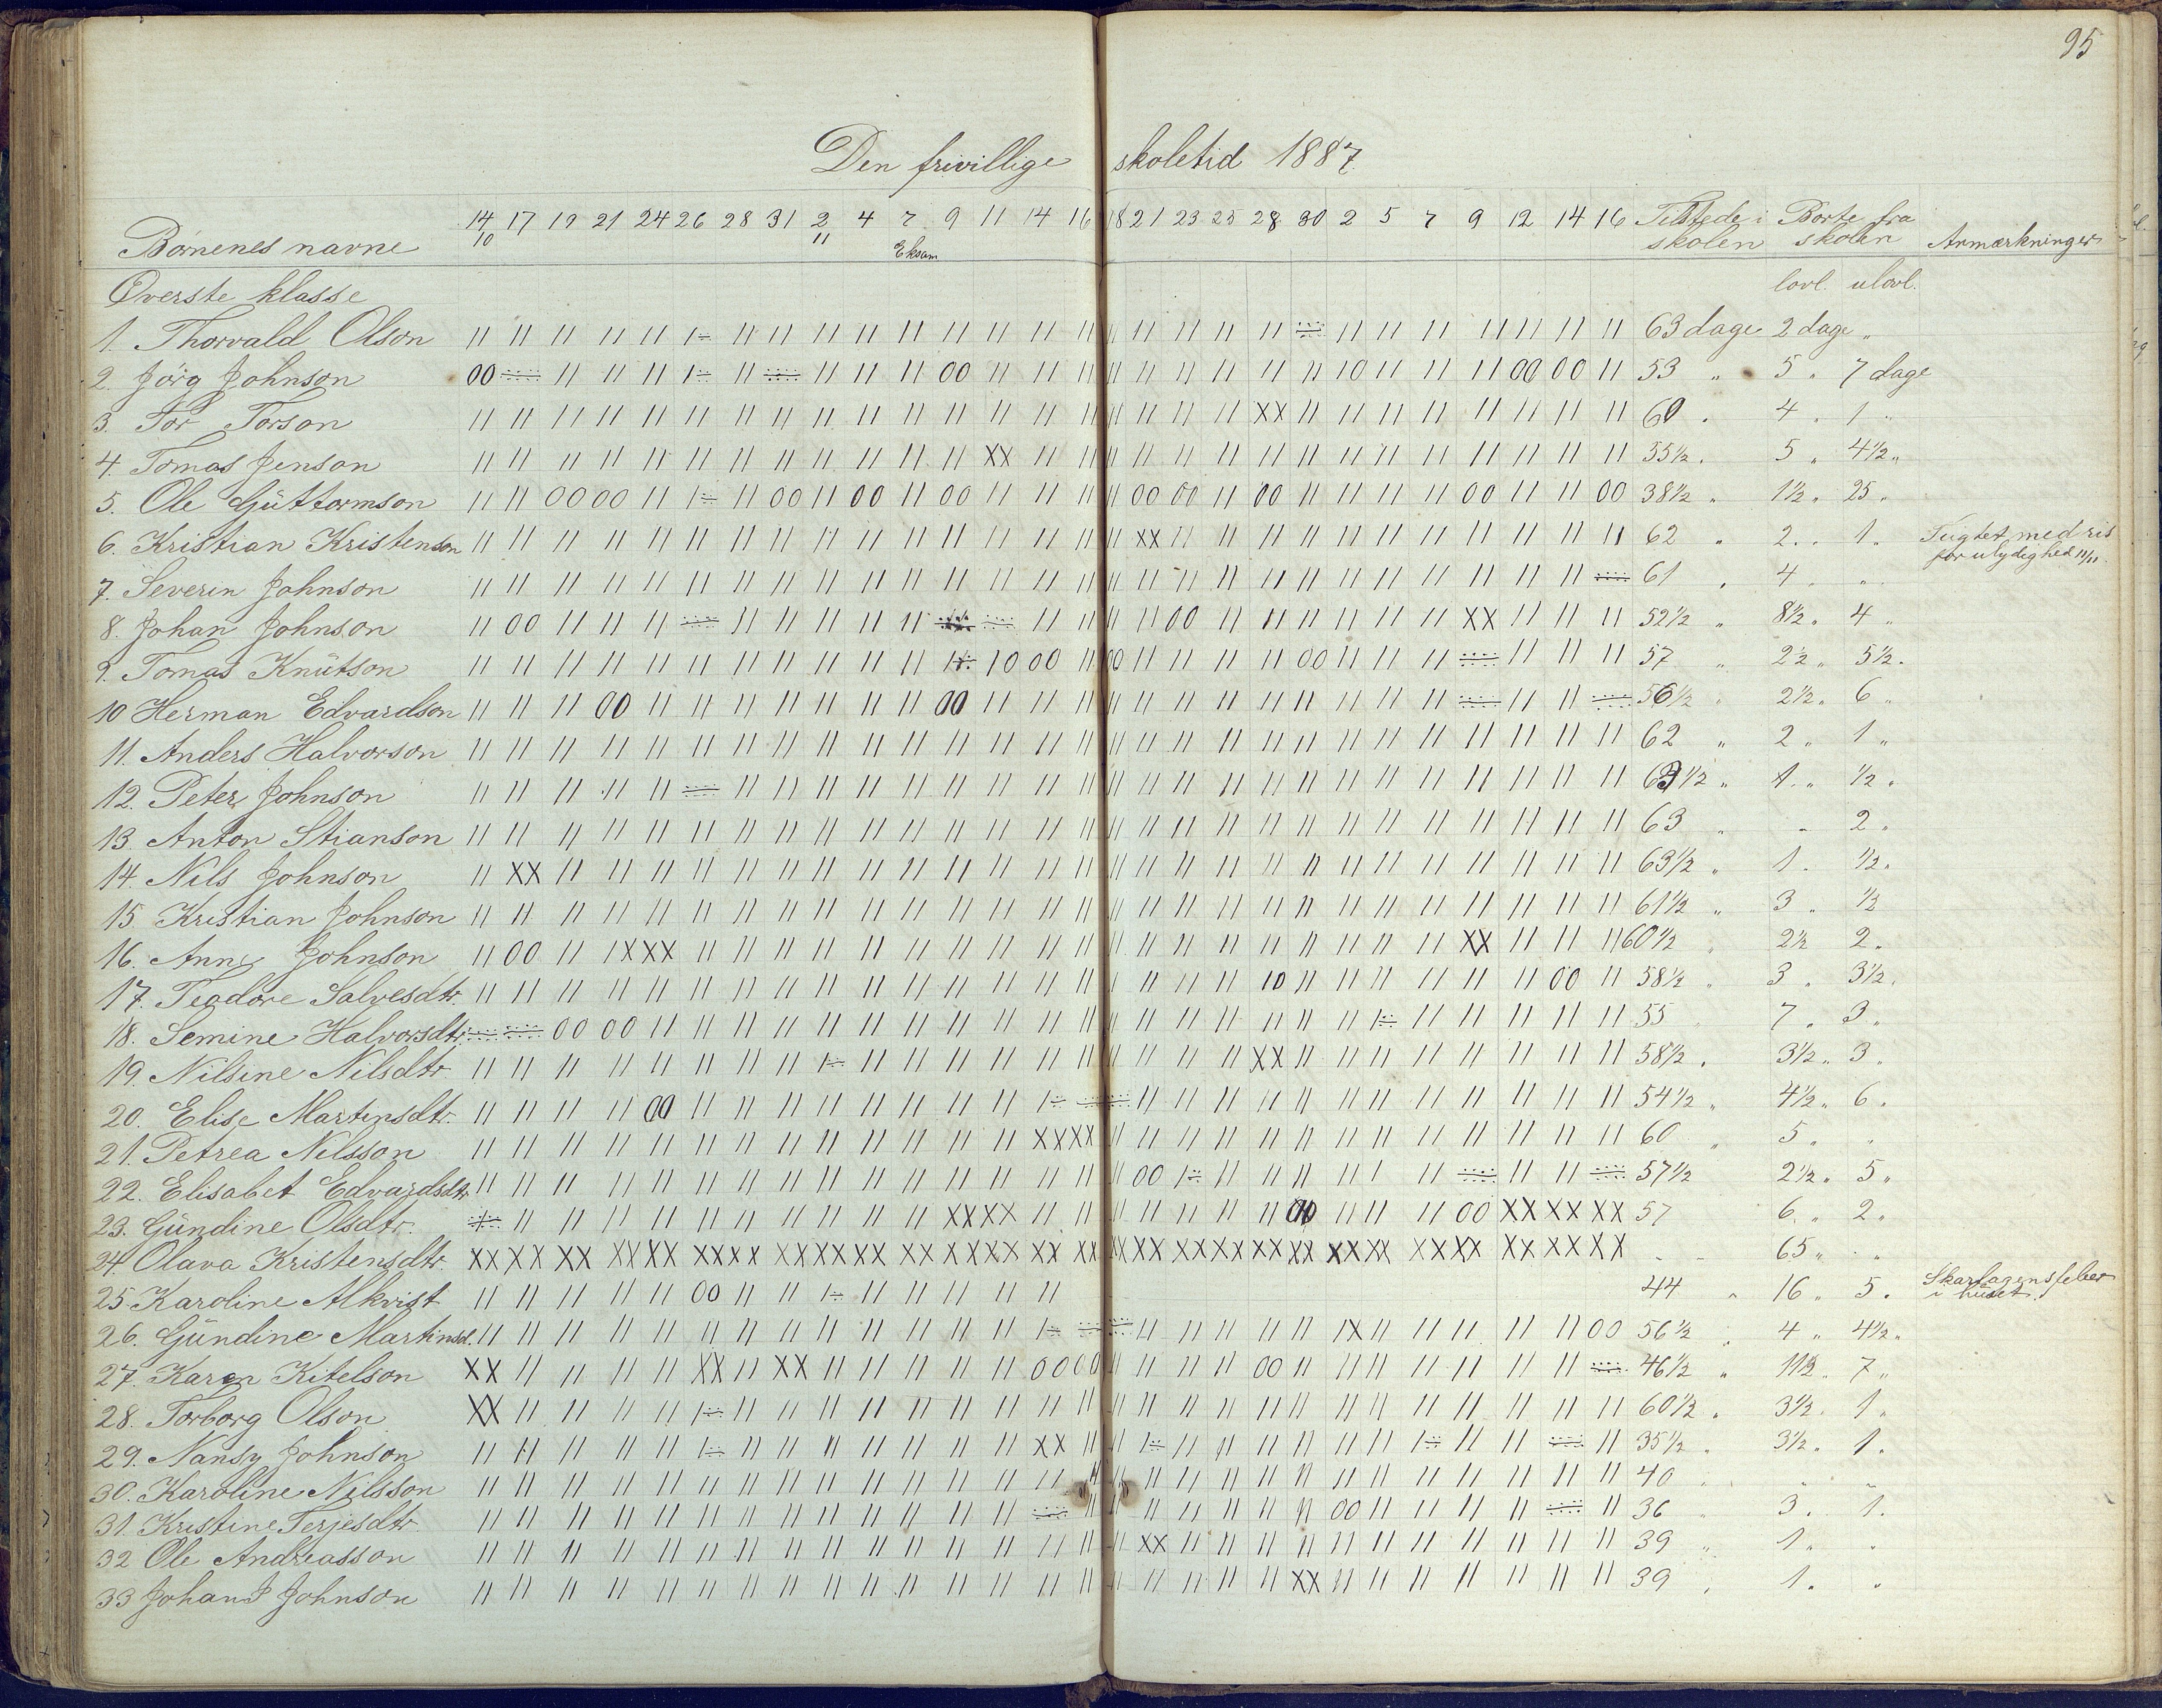 95
Den frivillige skoletid 1887.
Børnenes navne 14/10 17 19 21 24 26 28 31 2/11 4 7 9 11 14 16 18 21 23 25 28 30 2 5 7 9 12 14 16 Tilstede i skolen Borte fra skolen Anmærkninger
Eksam
Øverste klasse lovl. ulovl.
1. Thorvald Olson 63 dage 2 dage "
2. Jörg Johnson 53 " 5 " 7 dage
3. Tor Torson 60 " 4 " 1 "
4. Tomas Jenson 55½ " 5 " 4½ "
5. Ole Güttormson 38½ " 1½ " 25 "
6. Kristian Kristenson 62 " 2 " 1 " Tugtet med ris
for ulydighed 11/11.
7. Severin Johnson 61 " 4 " "
8. Johan Johnson 52½ " 8½ " 4 "
9. Tomas Knütson 57 " 2½ " 5½ "
10 Herman Edvardson 56½ " 2½ " 6 "
11. Anders Halvorson 62 " 2 " 1 "
12. Peter Johnson 63½ " 1 " ½ "
13. Anton Stianson 63 " " 2 "
14. Nils Johnson 63½ " 1 " ½ "
15. Kristian Johnson 61½ " 3 " ½
16. Anne Johnson 60½ " 2½ 2 "
17. Teodore Salvesdtr. 58½ " 3 " 3½ "
18. Semine Halvorsdtr. 55 " 7 " 3 "
19. Nilsine Nilsdtr. 58½ " 3½ " 3 "
20. Elise Martinsdtr. 54½ " 4½ " 6 "
21. Petrea Nilsson 60 " 5 " "
22. Elisabet Edvardsdtr. 57½ 2½ " 5 "
23. Gündine Olsdtr. 57 6 " 2 "
24. Olava Kristensdtr. - - 65 " "
25. Karoline Alkvist 44 " 16 " 5 " Skarlagensfeber
i huset.
26. Gündine Martinsd. 56½ " 4 " 4½ "
27. Karen Kitelson 46½ " 11½ " 7 "
28. Torborg Olson 60½ " 3½ " 1 "
29. Nansy Johnson 35½ " 3½ " 1 "
30. Karoline Nilsson 40 " " "
31. Kristine Terjesdtr. 36 " 3 " 1 "
32 Ole Andreasson 39 " 1 " "
33 Johan J Johnson 39 " 1 " "